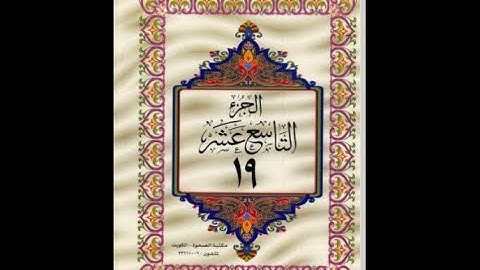 الجزء
التاسع عشر
١٩
مكتبة الصحوة - الكويت